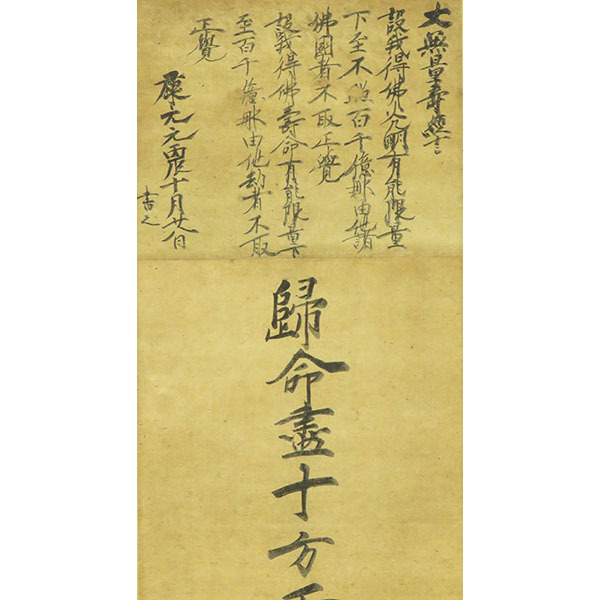 大無量壽經言
設我得佛光明有能限量
下至不照百千億那由他諸
佛國者不取正覺
設我得佛壽命有能限量下
至百千億那由他劫者不取
正覺
康元元丙辰十月廿八日
書之
歸命盡十方